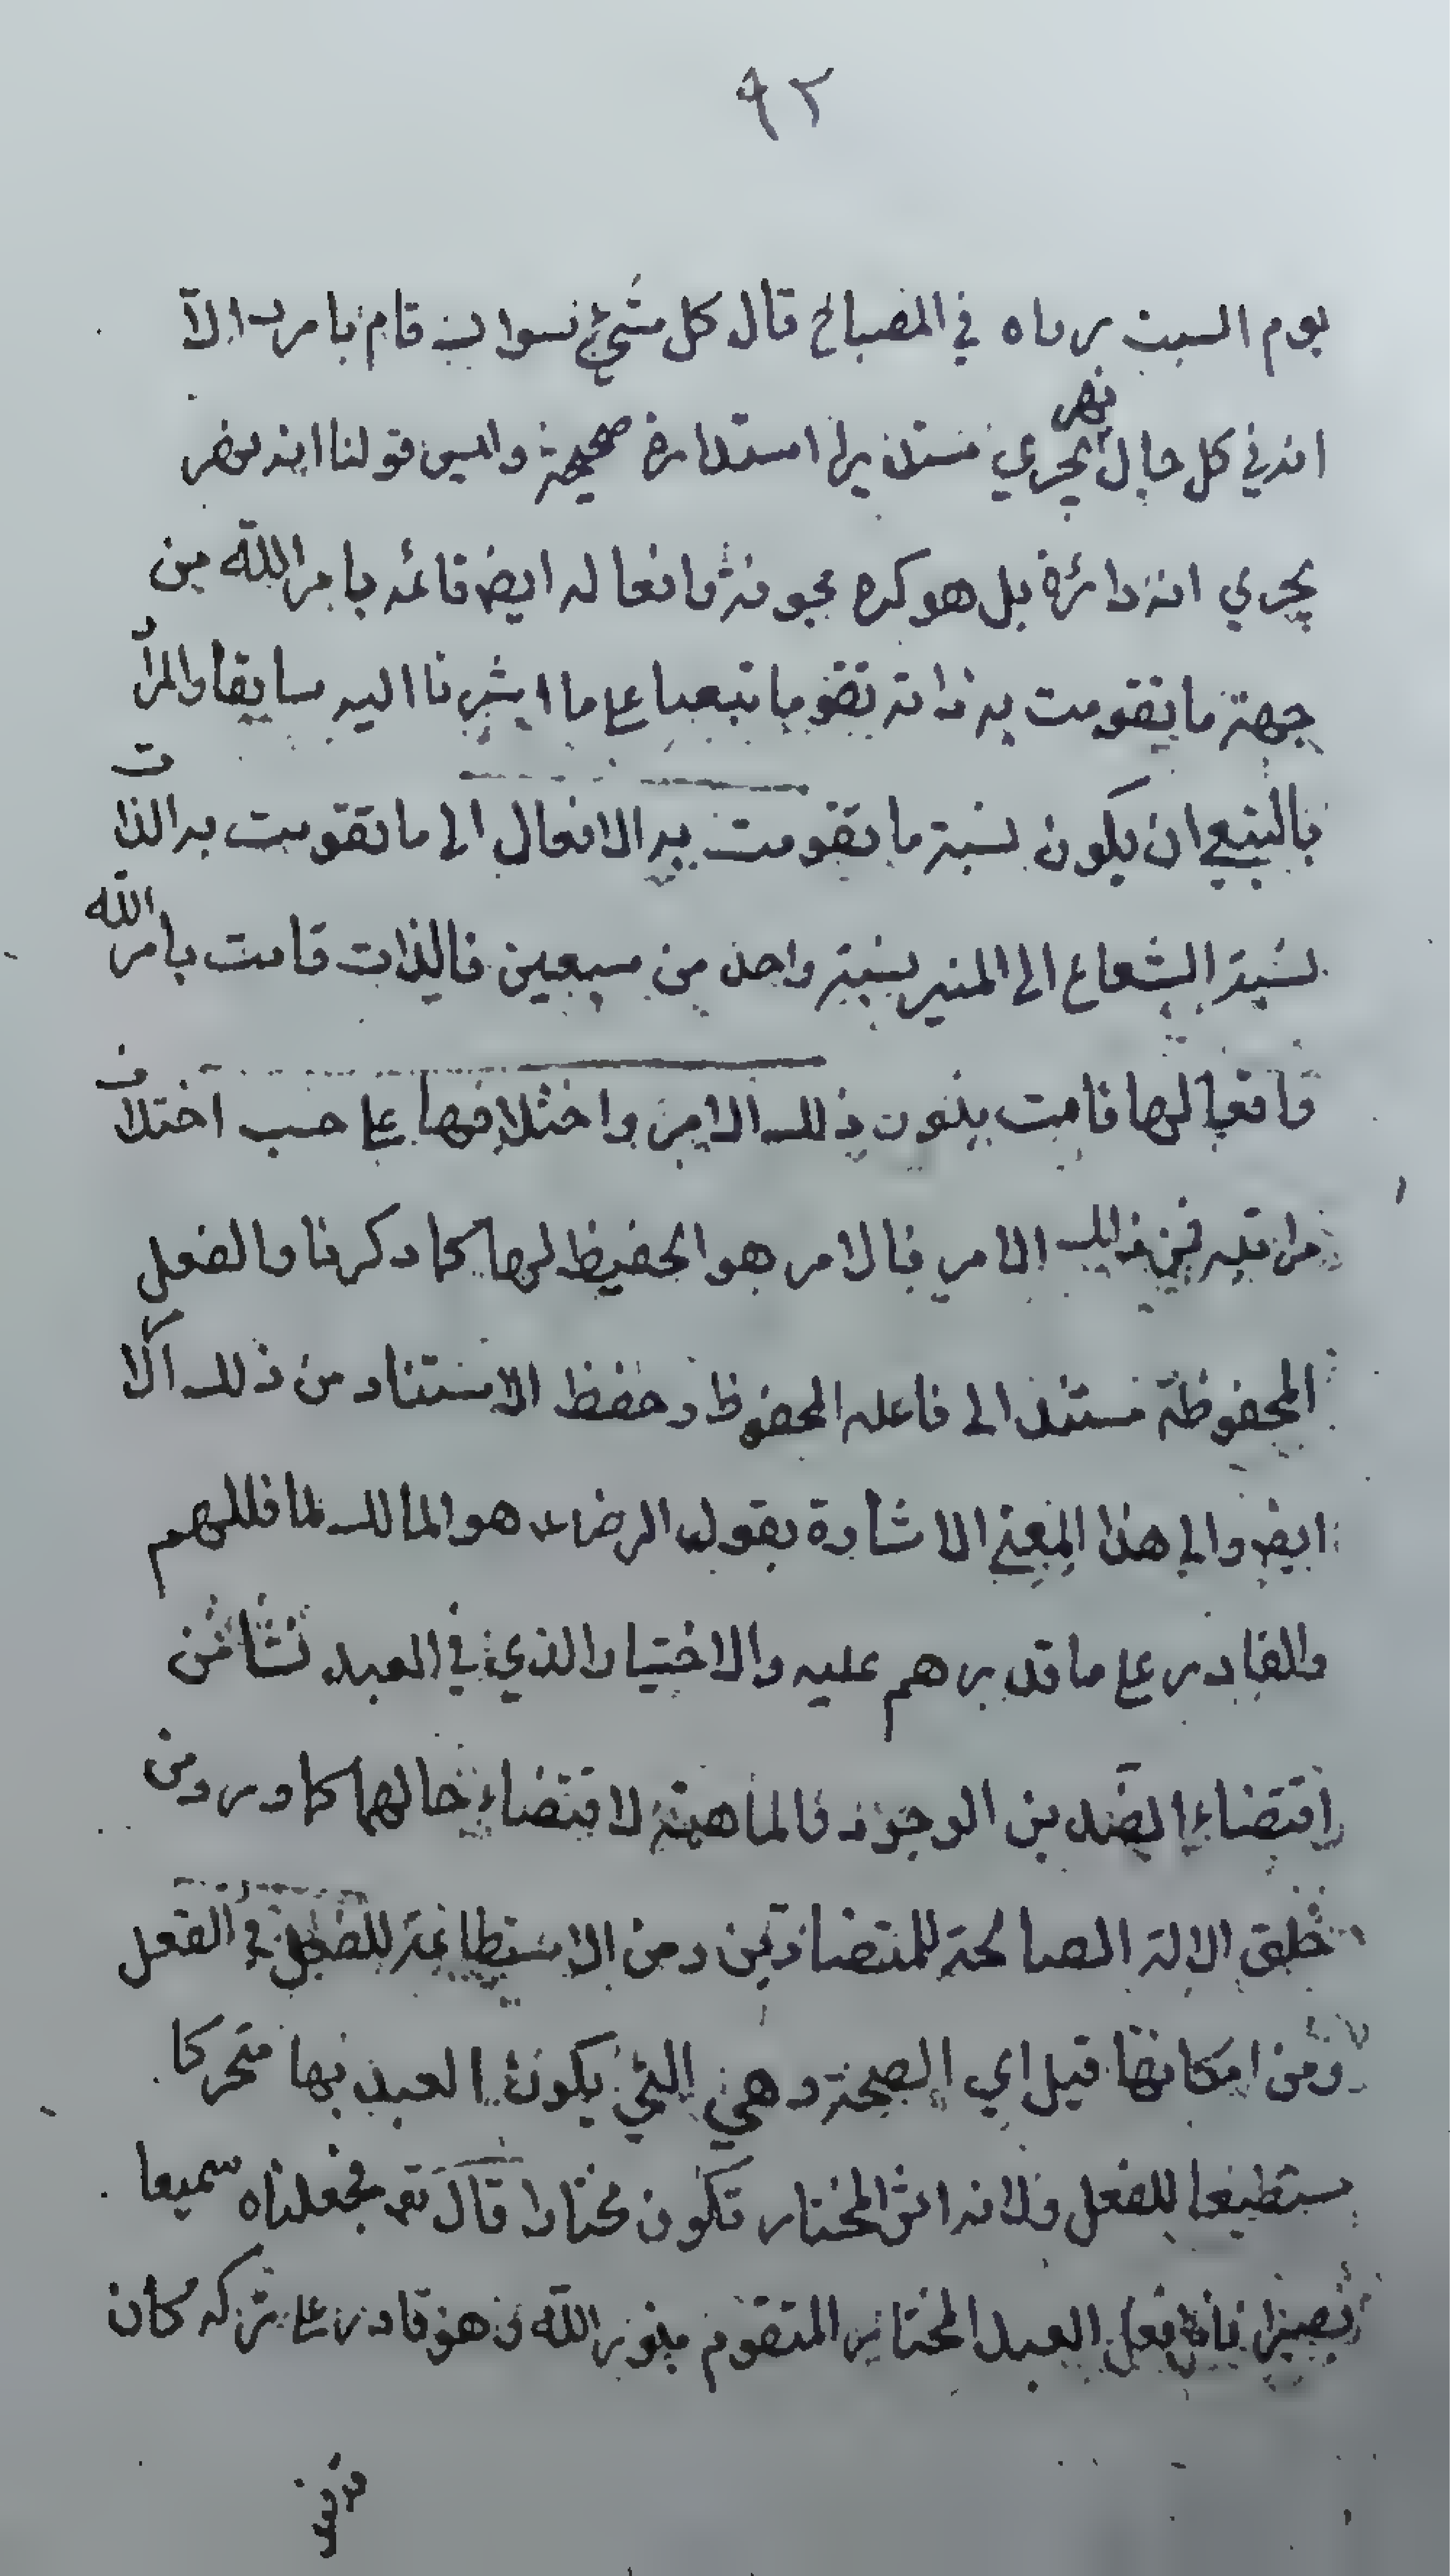 ٩٢
يوم السبت رواه في المصباح قال كل شيء سواك قام بامرك الا
انه في كل حال نهر يجري مستديرا استدارة صحيحة وليس قولنا انه نهر
يجري انه دائرة بل هو كره مجوفة وافعاله ايض قائمه بامر الله من
جهة ما تقومت به ذاته تقوما تبعيا على ما اشرنا اليه سابقا والمراد
بالتبعي ان يكون نسبة ما تقومت به الافعال الى ما تقومت به الذات
نسبة الشعاع الى المنير نسبة واحد من سبعين فالذات قامت بامر الله
وافعالها قامت بنور ذلك الامر واختلافها على حسب اختلاف
مراتبه من ذلك الامر فالامر هو الحفيظ لها كما ذكرنا والفعل
المحفوظة مستند الى فاعله المحفوظ وحفظ الاستناد من ذلك الامر
ايض والى هذا المعنى الاشارة بقول الرضا ع هو المالك لما مللهم
والقادر على ما قدرهم عليه والاختيار الذي في العبد نشأ من
اقتضاء الضدين الوجود والماهية لاقتضاء حالهما كما ور ومن
خلق الالة الصالحة للمتضادين ومن الاستطاعة للفعل في الفعل
ومن امكانها قبل اي الصحة وهي التي يكون العبد بها متحركا
مستطيعا للفعل ولانه اثر المختار تكون مختارا قال تع فجعلناه سميعا
بصيرا فاذا فعل العبد المختار المتقوم بنور الله وهو قادر على تركه كان